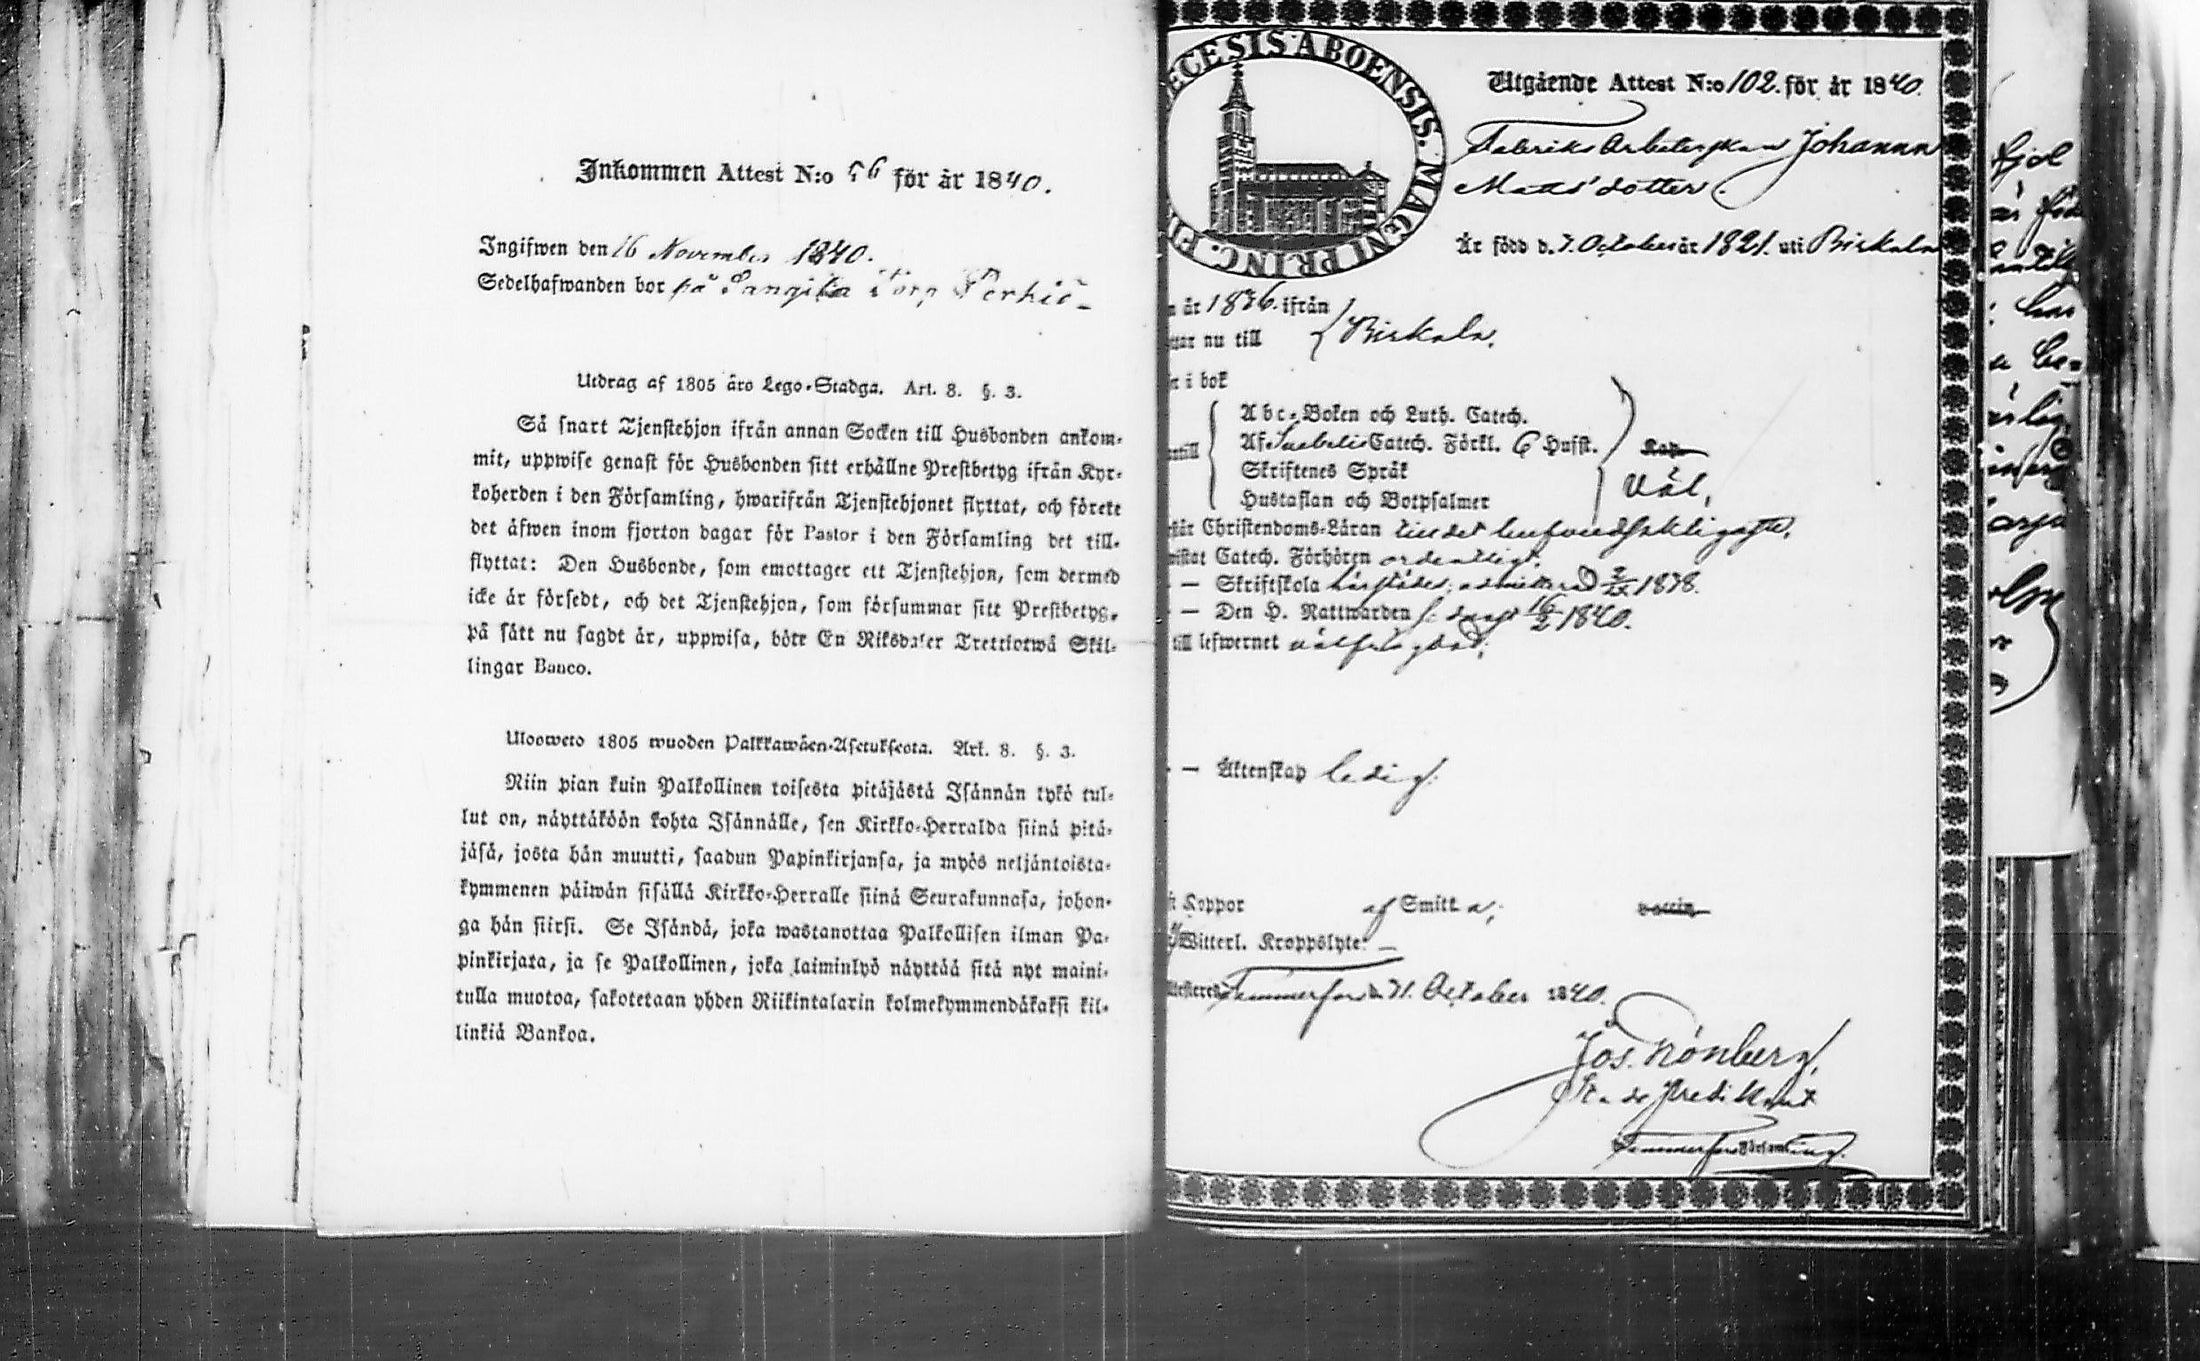 Inkommen Attest N:o 56 för år 1840.
Ingifwen den 16 November 1840.
Sedelhafwanden bor på Sangila Torp Perkiö
Utdrag af 1805 åro Lego-Stadga. Art. 8. §. 3.
Så snart Tjenstehjon ifrån annan Socken till Husbonden ankom-
mit, uppwise genast för Husbonden sitt erhållne Prestbetyg ifrån Kyr-
koherden i den Församling, hwarifrån Tjenstehjonet flyttat, och förete
det äfwen inom fjorton dagar för Pastor i den Församling det till-
flyttat: Den Husbonde, som emottager ett Tjenstehjon, som dermed
icke är försedt, och det Tjenstehjon, som försummar sitt Prestbetyg,
på sätt nu sagdt är, uppwisa, böte En Riksdaler Trettiotwå Skil-
lingar Banco.
Ulosweto 1805 wuoden Palkkawäen-Asetuksesta. Art. 8. §. 3.
Niin pian kuin Palkollinen toisesta pitäjästä Isännän tykö tul-
lut on, näyttäköön kohta Isännälle, sen Kirkko-Herralda siinä pitä-
jäsä, josta hän muutti, saadun Papinkirjansa, ja myös neljäntoista-
kymmenen päiwän sisällä Kirkko-Herralle siinä Seurakunnasa, johon-
ga hän siirsi. Se Isändä, joka wastanottaa Palkollisen ilman Pa-
pinkirjata, ja se Palkollinen, joka laiminlyö näyttää sitä nyt maini-
tulla muotoa, sakotetaan yhden Riikintalarin kolmekymmendäkaksi kil-
linkiä Bankoa.
ECESIS ABOENSIS. MAGNI PRINC. FI
Utgående Attest N:o 102. för år 1840.
Fabriks Arbeterskan Johanna
Matts dotter.
Är född d. 7. October år 1821. uti Birkala
år 1836. ifrån
nu till Birkala.
i bok
Abc-Boken och Luth. Catech.
Af Svebelii Catech. Förkl. 6 Hufst.
Skriftenes Språk
Hustaflan och Botpsalmer
Väl,
Christendoms-Läran
Catech. Förhören ordentligt.
— Skriftskola härstädes, admitterad 1838.
— Den H. Nattwarden 1840.
till lefwernet välfrägdad;
— Äktenskap ledig.
Koppor af Smitta;
Witterl. Kroppslyte: —
Tammerfors d. 31. October 1840.
Jos. Grönberg,
Stads Predikant
Tammerfors Församling.